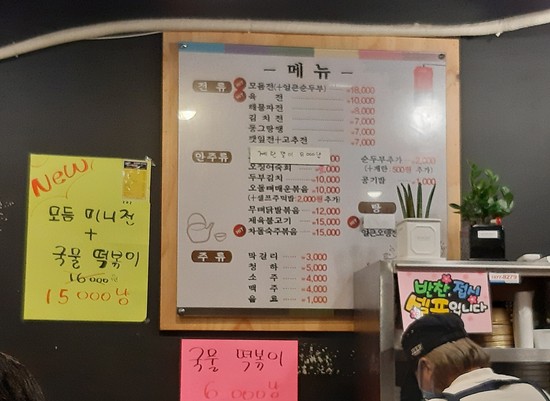 - 메 뉴 -
전 류
모듬전(+얼큰순두부) 18,000
육 전 10,000
해물파전 8,000
김 치 전 7,000
동그랑땡 7,000
깻잎전+고추전 7,000
안주류
오징어숙회
두부김치
오돌뼈매운볶음 15,000
(+셀프주먹밥 2,000원 추가)
무뼈닭발볶음 12,000
제육불고기 15,000
차돌숙주볶음 15,000
주 류
막걸리 3,000
청 하 5,000
소 주 4,000
맥 주 4,000
음 료 1,000
순두부추가 2,000
(+계란 500원 추가)
공기밥 1,000
밥
NEW
모듬 미니전
+
국물 떡볶이
16000원
15000냥
국물 떡볶이
6000냥
반찬, 접시
셀프입니다